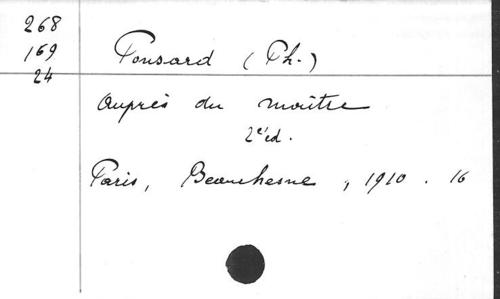 268
169
24
Ponsard (Ph.)
Auprès du maître
2e éd.
Paris, Beauchesne, 1910. 16